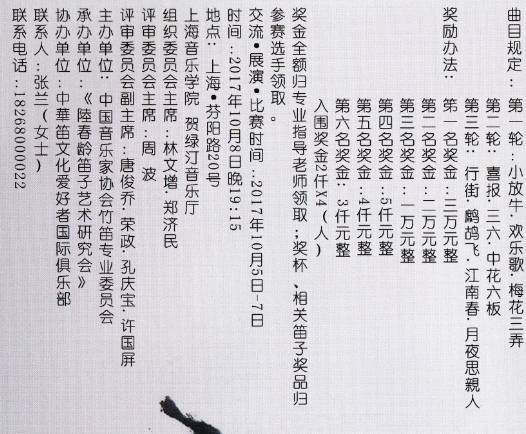 曲目规定：第一轮：小放牛·欢乐歌·梅花三弄
第二轮：喜报·三六·中花六板
第三轮：行街·鹧鸪飞·江南春·月夜思親人
奖励办法：第一名奖金：三万元整
第二名奖金：二万元整
第三名奖金：一万元整
第四名奖金：5仟元整
第五名奖金：4仟元整
第六名奖金：3仟元整
入围奖金2仟X4（人）
奖金全额归专业指导老师领取；奖杯、相关笛子奖品归
参赛选手领取。
交流•展演•比赛时间：2017年10月5日-7日
时间：2017年10月8日晚19:15
地点：上海•芬阳路20号
上海音乐学院 贺绿汀音乐厅
组织委员会主席：林文增·郑济民
评审委员会主席：周 波
评审委员会副主席：唐俊乔·荣政·孔庆宝·许国屏
主办单位：中国音乐家协会竹笛专业委员会
承办单位：《陸春龄笛子艺术研究会》
协办单位：中華笛文化爱好者国际俱乐部
联系人：张兰（女士）
联系电话：18268000022